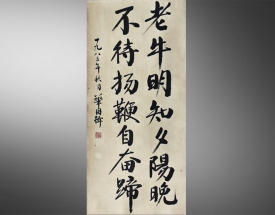 老牛明知夕陽晚
不待扬鞭自奋蹄
一九八三年秋月